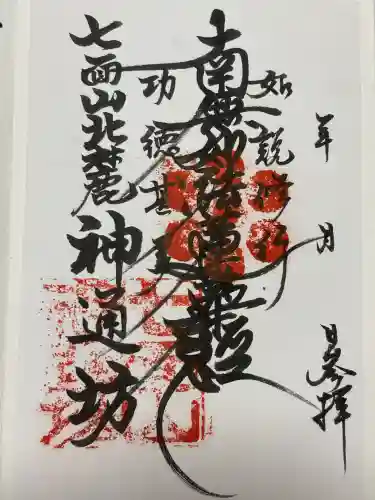 年 月 日参拝
如説修行
南無妙法蓮華経
功徳甚
七面山北麓
神通坊